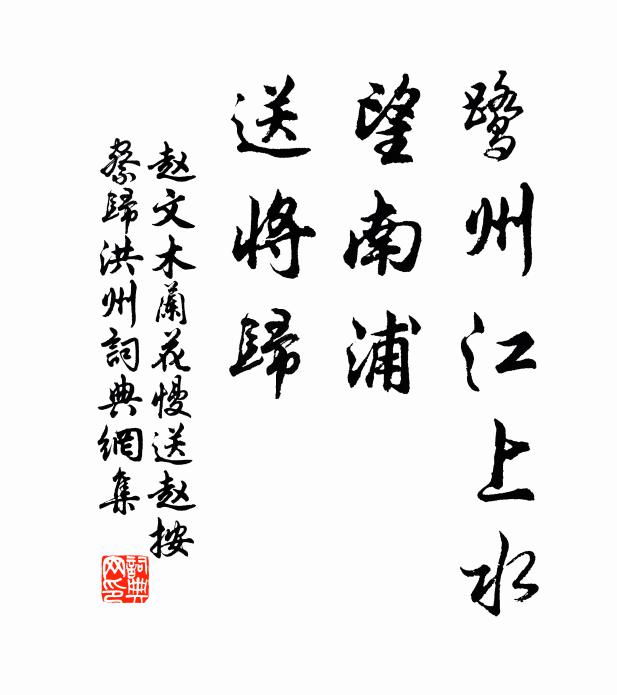 鹭州江上水
望南浦
送将歸
赵文木蘭花慢送赵按
祭歸洪州詞典網集
詞典
网印